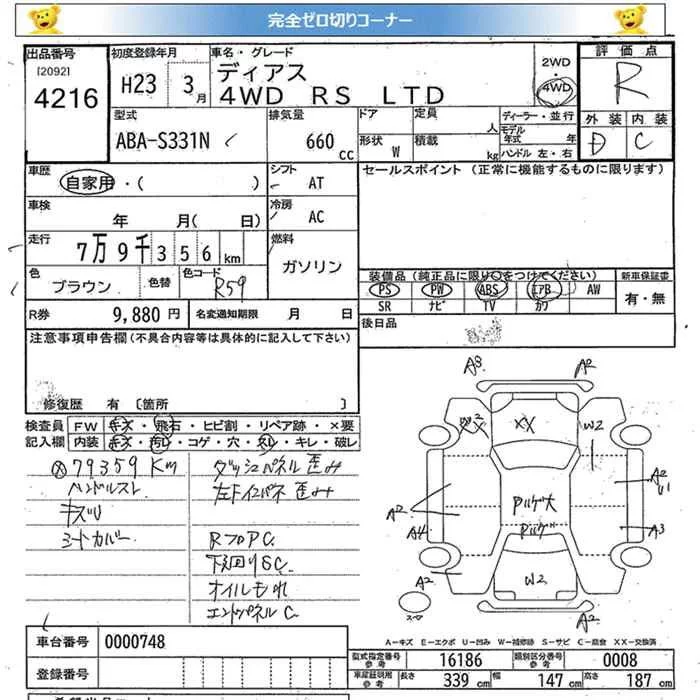 完全ゼロ切りコーナー
出品番号 初度登録年月 車名・グレード 2WD・4WD 評価点
[2092] 4216 H23 3月 ディアス 4WD RS LTD R
型式 排気量 ドア 定員 人 ディーラー・並行 外装 内装
ABA-S331N 660cc 形状 W 積載 kg モデル年式 年 ハンドル 左・右 D C
車歴 シフト セールスポイント (正常に機能するものに限ります)
自家用・( ) AT
車検 冷房
年 月( 日) AC
走行 燃料
7万9千356km ガソリン
色 色替 色コード 装備品 (純正品に限り○をつけてください) 新車保証書
ブラウン R59 PS PW ABS エアB AW 有・無
SR ナビ TV カワ
R券 9,880円 名変通知期限 月 日 後日品
注意事項申告欄(不具合内容等は具体的に記入して下さい)
修復歴 有 [箇所 ]
検査員 FW キズ・飛石・ヒビ割・リペア跡・×要
記入欄 内装 キズ・汚レ・コゲ・穴・スレ・キレ・破レ
79359Km ダッシュパネル歪み
ハンドルスレ 左下インパネ歪み
キズU
シートカバー RフロアC
下回りSC
オイルもれ
エンドパネルC
A3 A2
XX W2
A2 A4 Pルゲ大 A2 U1
Pルゲ A3
A2 W2
スペア A2
A-キズ E-エクボ U-凹み W-補修跡 S-サビ C-腐食 XX-交換済
車台番号 0000748 型式指定番号 参考 16186 類別区分番号 参考 0008
登録番号 車庫証明用 参考 長さ 339cm 幅 147cm 高さ 187cm